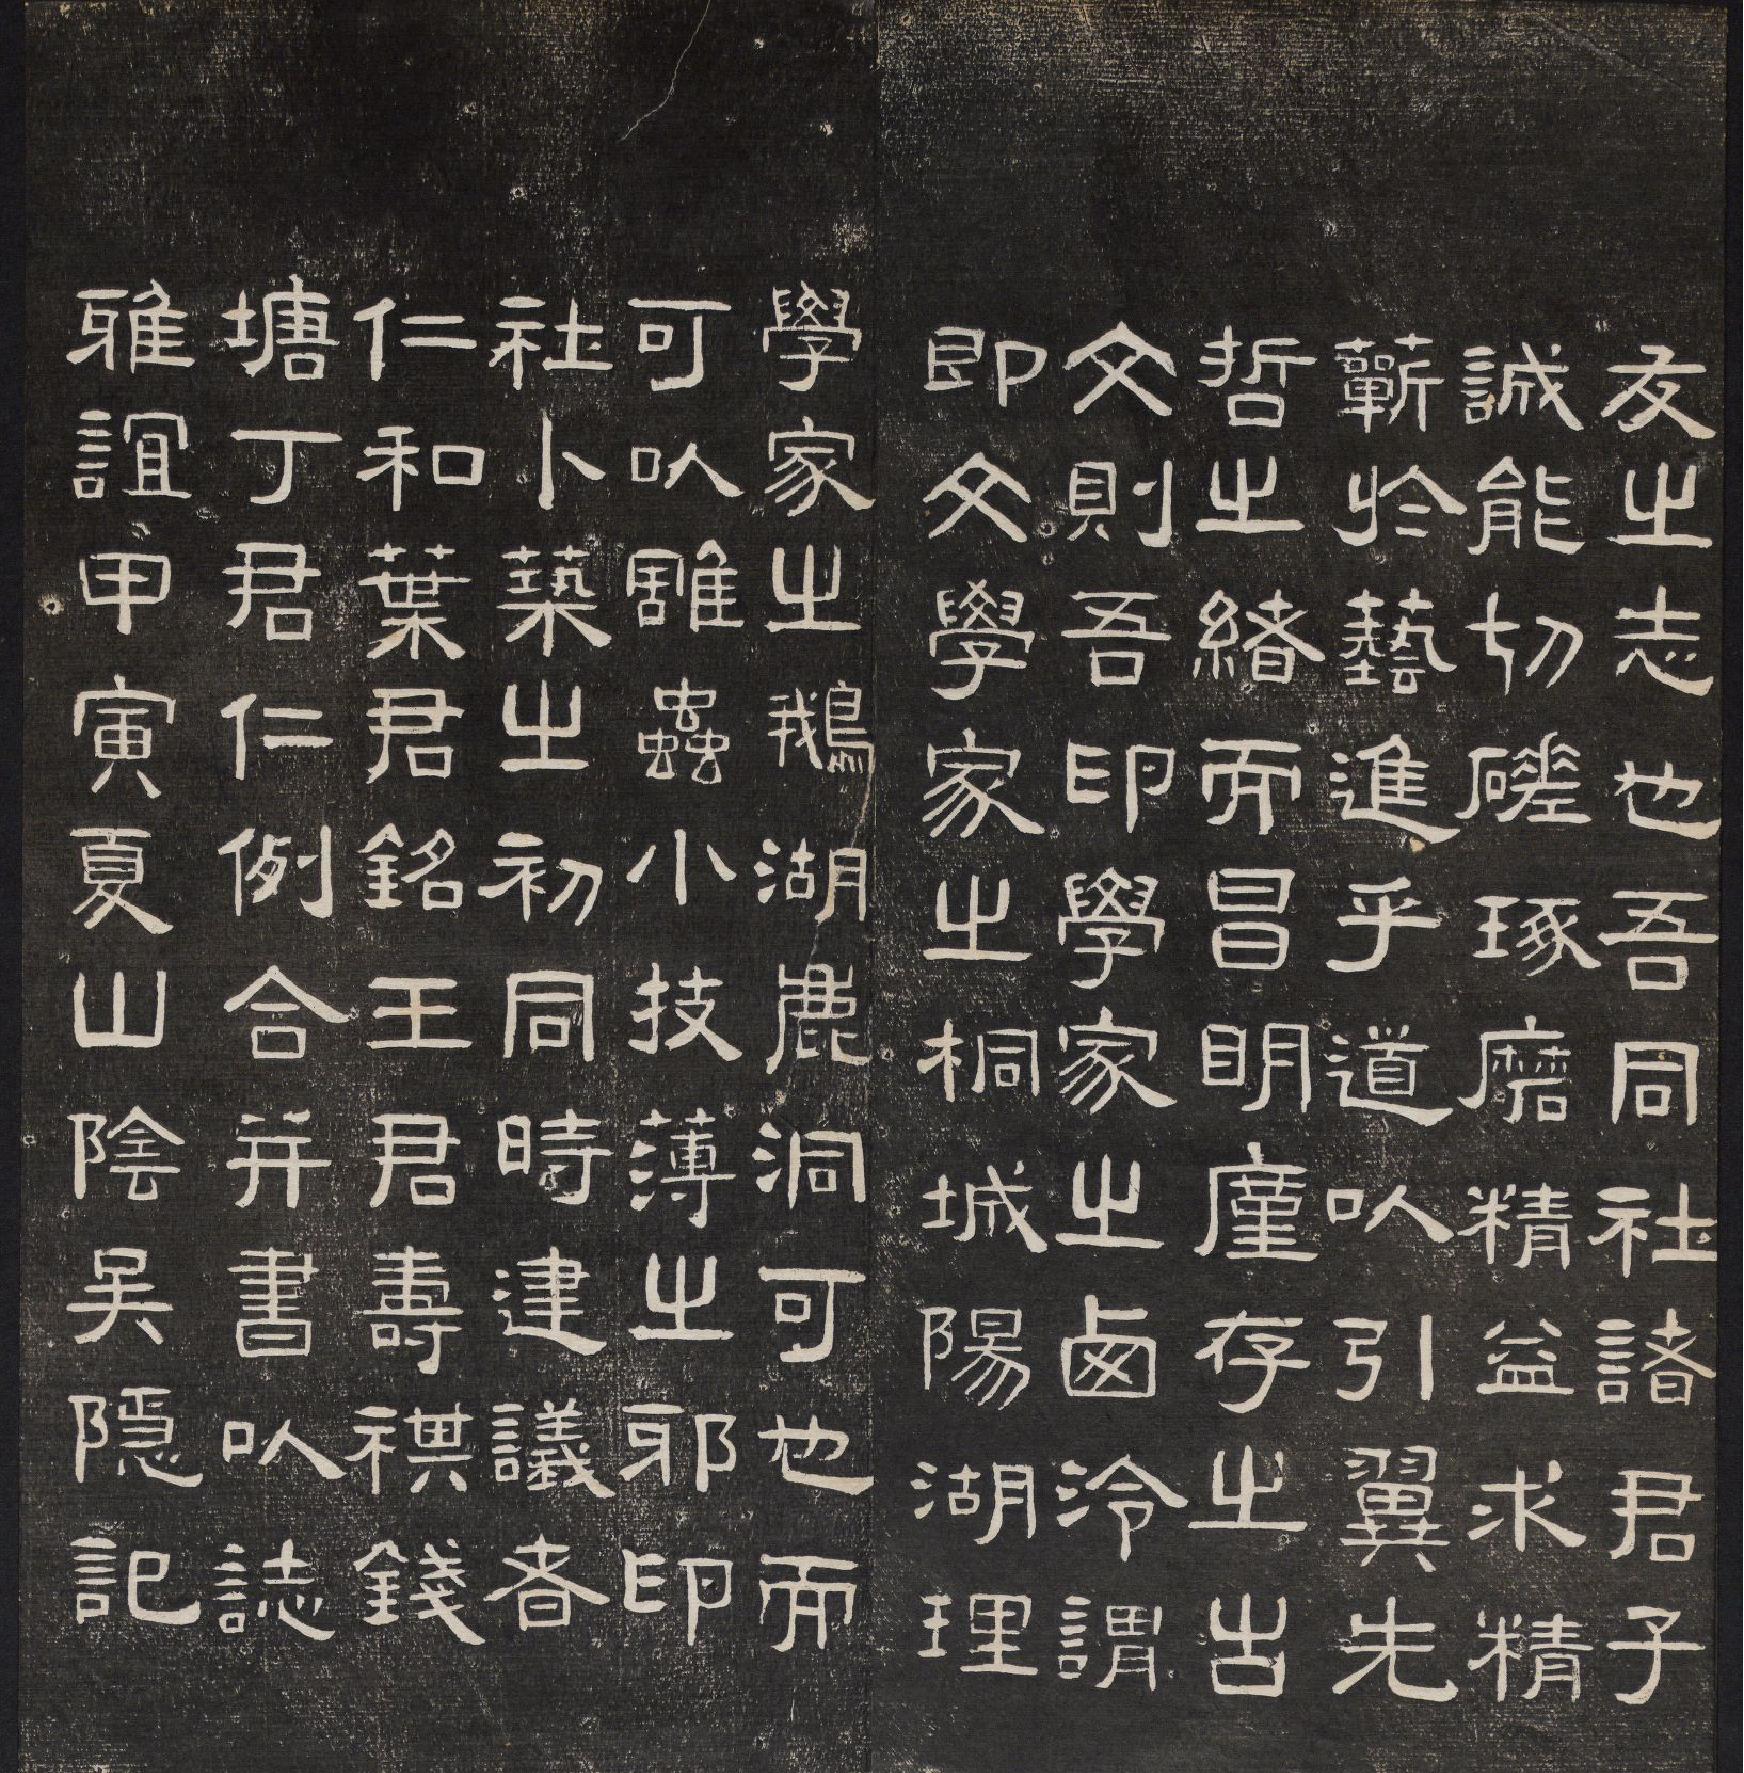 友之志也吾同社諸君子
誠能切磋琢磨精益求精
蘄於藝進乎道以引翼先
哲之緒而昌明廑存之古
文則吾印學家之西泠謂
即文學家之桐城陽湖理
學家之鵝湖鹿洞可也而
可以雕蟲小技薄之邪印
社卜築之初同時建議者
仁和葉君銘王君壽祺錢
塘丁君仁例合并書以誌
雅誼甲寅夏山陰吳隱記